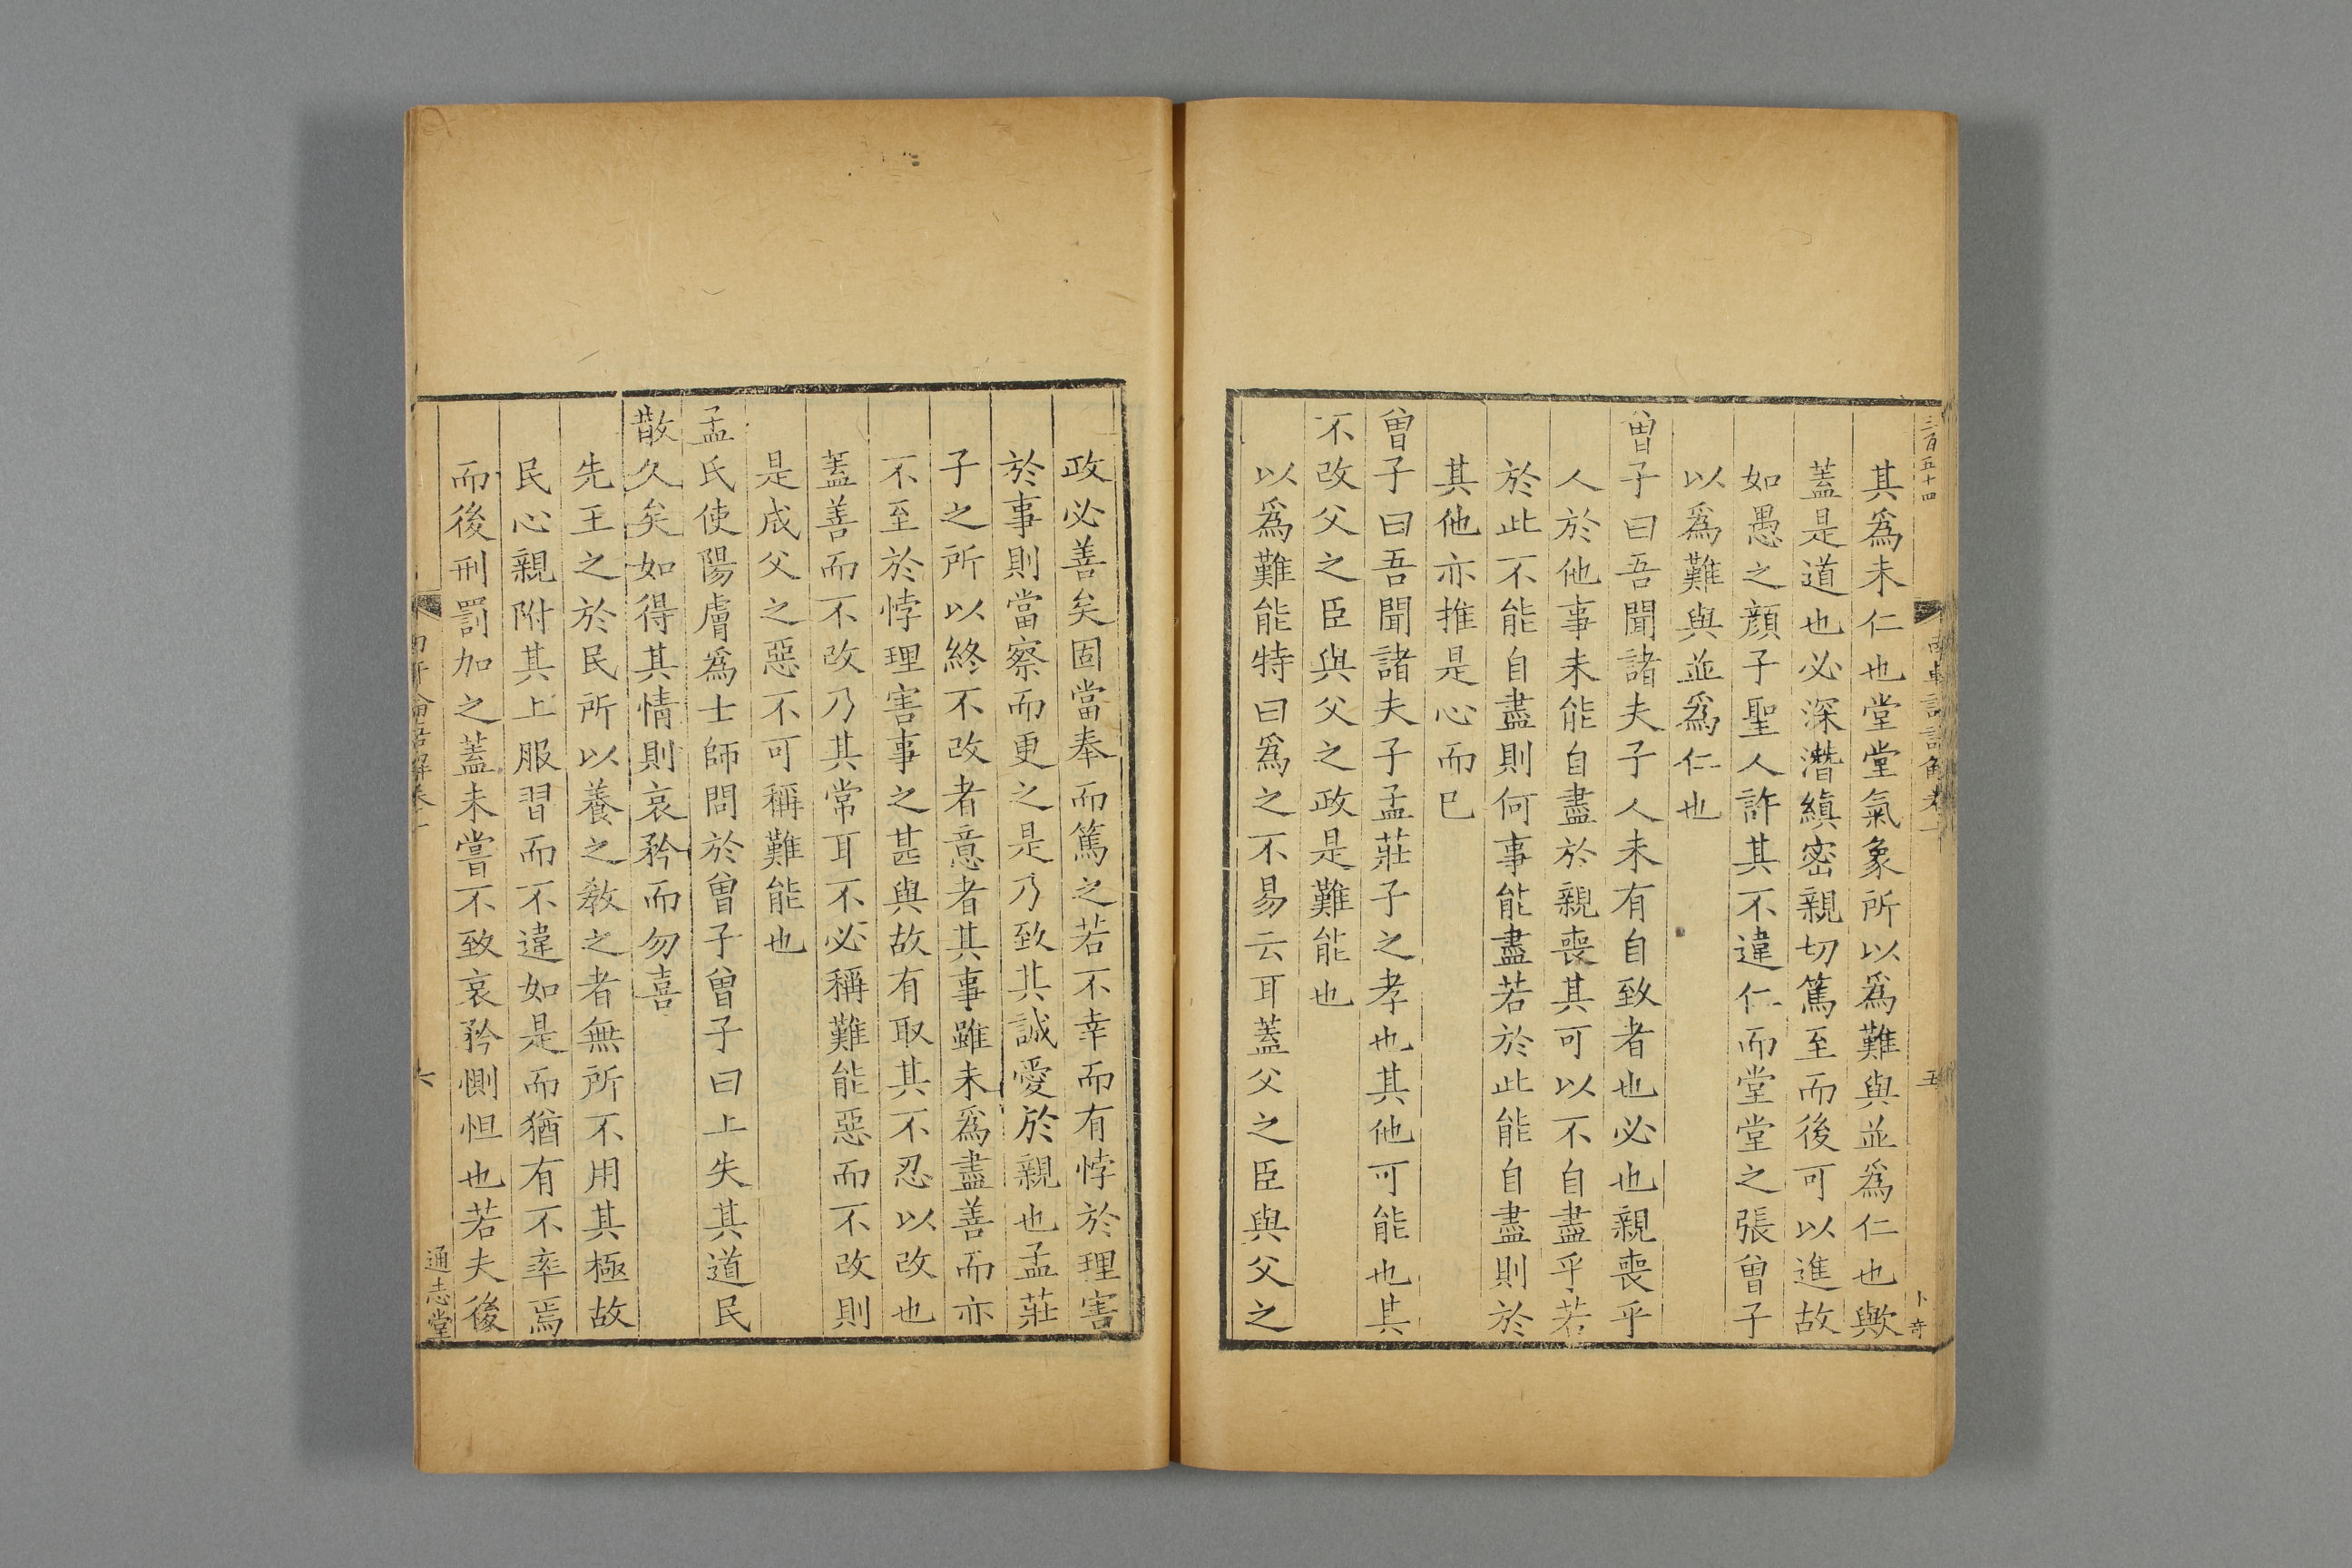 三百五十四
五
卜奇
其爲未仁也堂堂氣象所以爲難與並爲仁也歟
蓋是道也必深潛縝密親切篤至而後可以進故
如愚之顏子聖人許其不違仁而堂堂之張曾子
以爲難與並爲仁也
曾子曰吾聞諸夫子人未有自致者也必也親喪乎
人於他事未能自盡於親喪其可以不自盡乎若
於此不能自盡則何事能盡若於此能自盡則於
其他亦推是心而已
曾子曰吾聞諸夫子孟莊子之孝也其他可能也其
不改父之臣與父之政是難能也
以爲難能特曰爲之不易云耳蓋父之臣與父之
政必善矣固當奉而篤之若不幸而有悖於理害
於事則當察而更之是乃致其誠愛於親也孟莊
子之所以終不改者意者其事雖未爲盡善而亦
不至於悖理害事之甚與故有取其不忍以改也
蓋善而不改乃其常耳不必稱難能惡而不改則
是成父之惡不可稱難能也
孟氏使陽膚爲士師問於曾子曾子曰上失其道民
散久矣如得其情則哀矜而勿喜
先王之於民所以養之教之者無所不用其極故
民心親附其上服習而不違如是而猶有不率焉
而後刑罰加之蓋未嘗不致哀矜惻怛也若夫後
六
通志堂